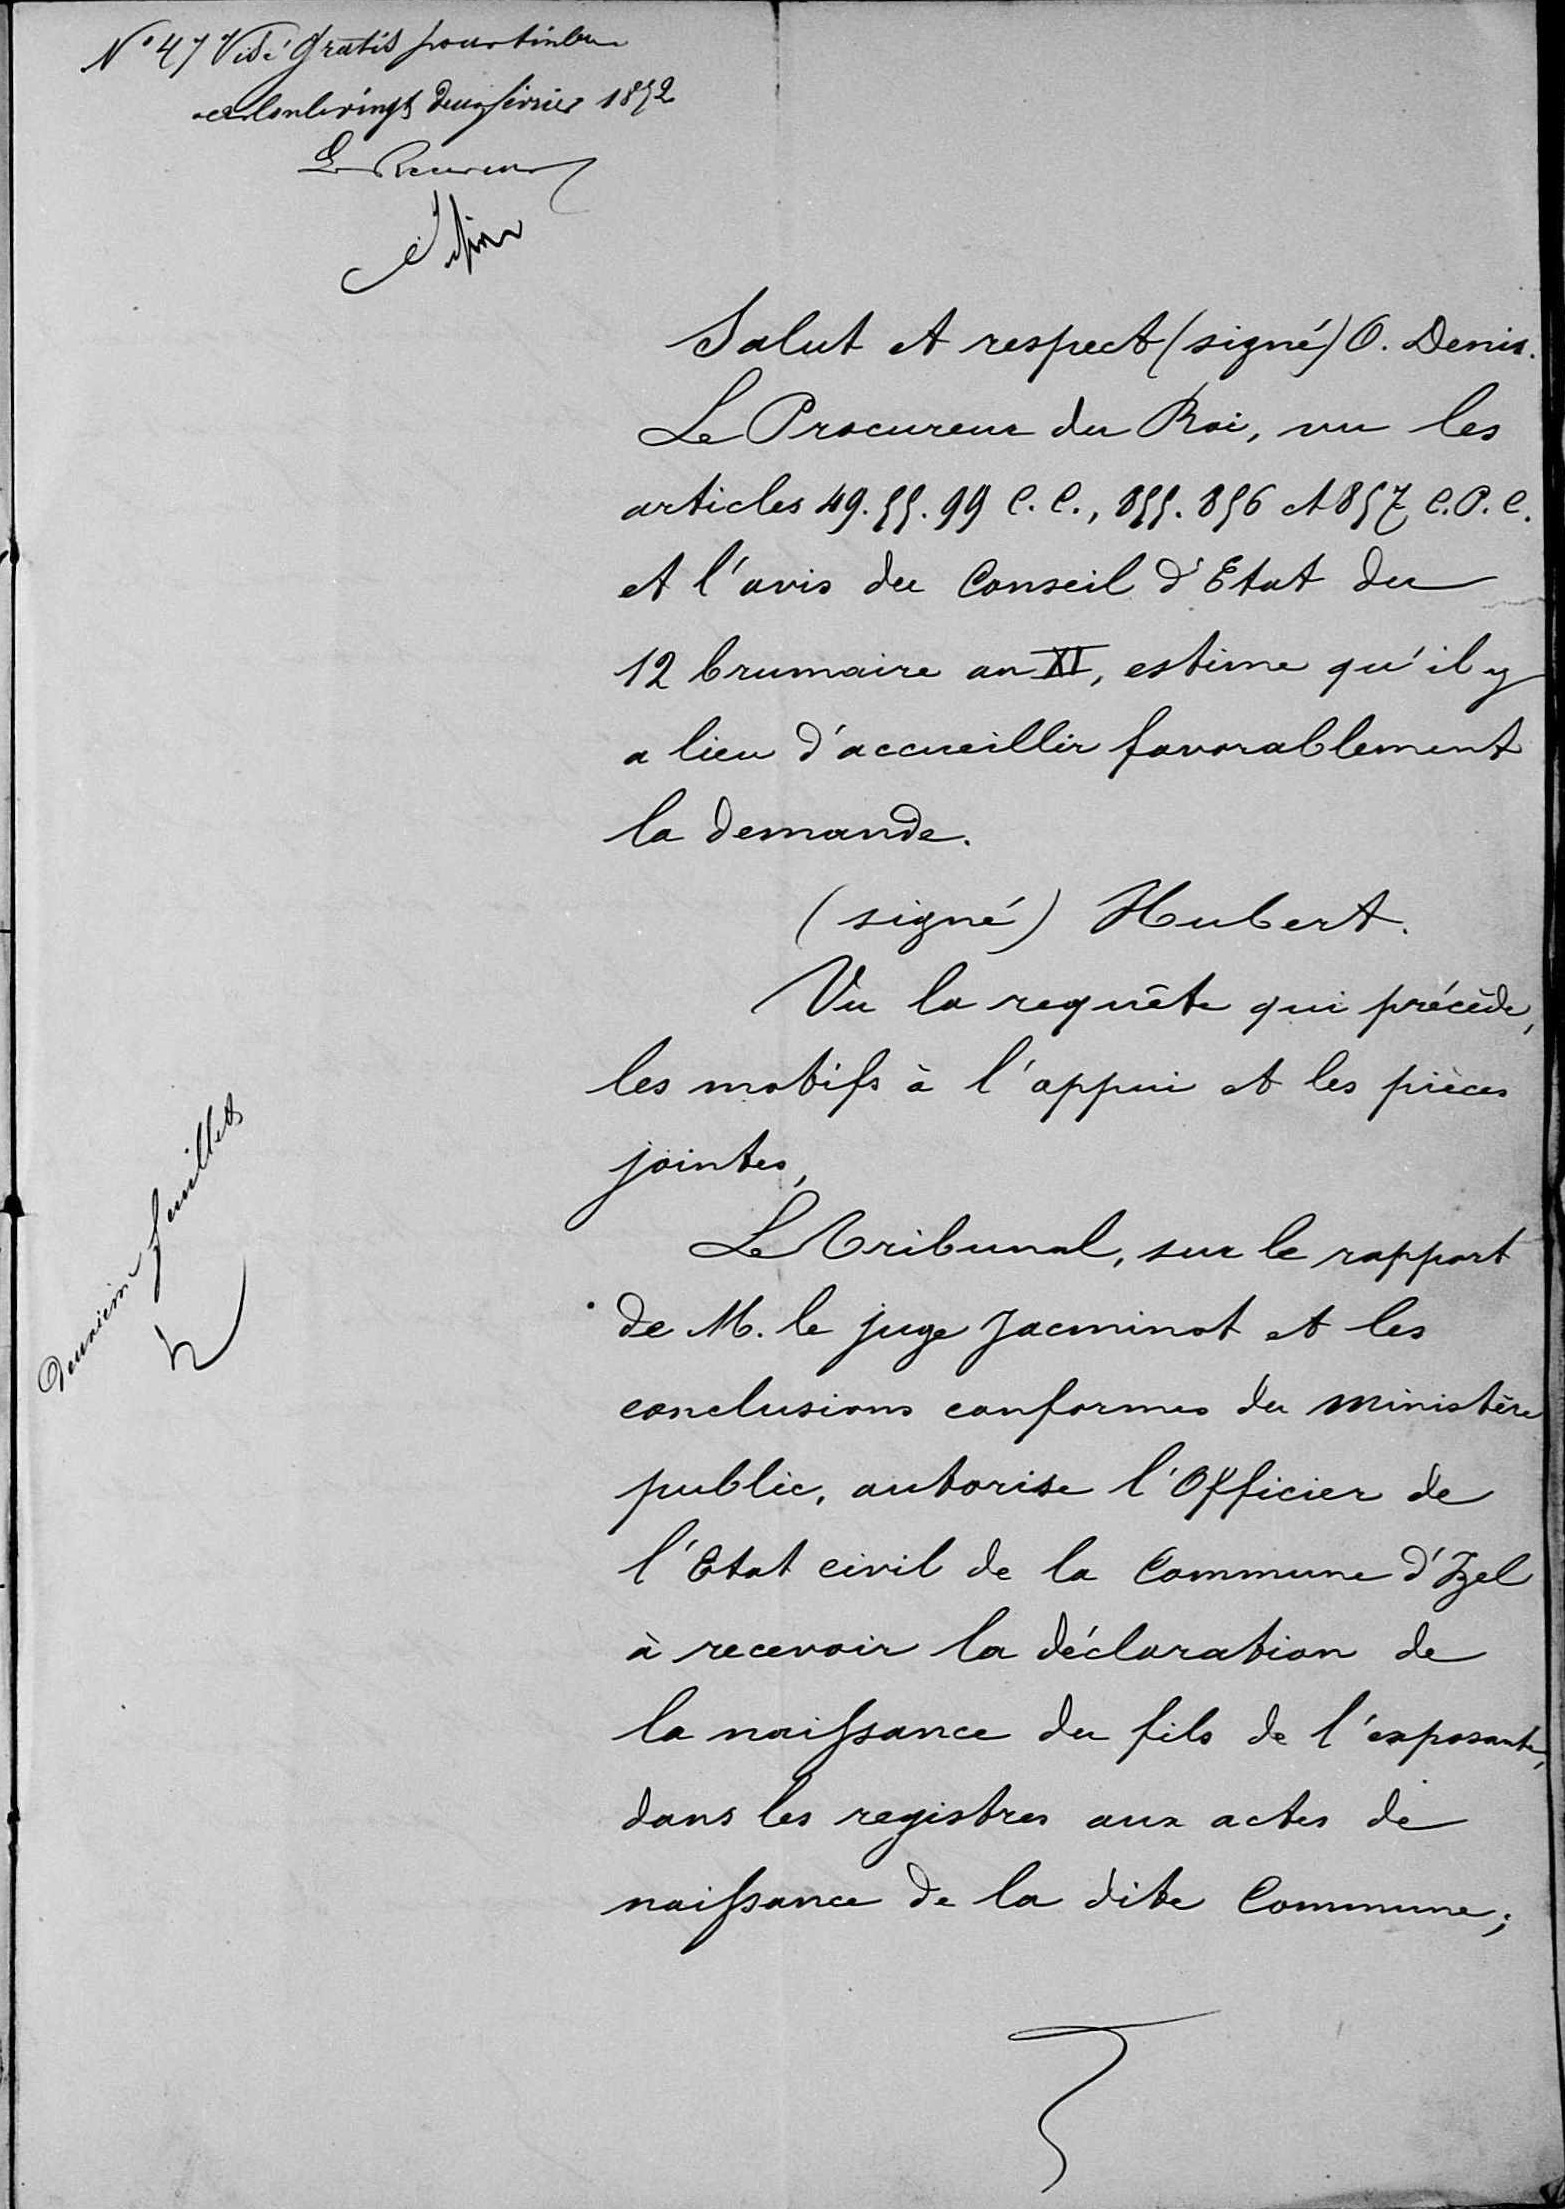 N° 47 Visé Gratis pour timbre
Arlon le vingt deux février 1892
Le Receveur
Salut et respect (signé) O. Denis.
Le Procureur du Roi, vu les
articles 49. 55. 99 C. C., 855. 856 et 857 C. P. C.
et l'avis du Conseil d'Etat du
12 brumaire an XI, estime qu'il y
a lieu d'accueillir favorablement
la demande.
(signé) Hubert.
Vu la requête qui précède,
les motifs à l'appui et les pièces
jointes,
Le Tribunal, sur le rapport
de M. le juge Jacminot et les
conclusions conformes du ministère
public, autorise l'Officier de
l'Etat civil de la Commune d'Izel
à recevoir la déclaration de
la naissance du fils de l'exposante,
dans les registres aux actes de
naissance de la dite Commune;
Deuxième feuillet